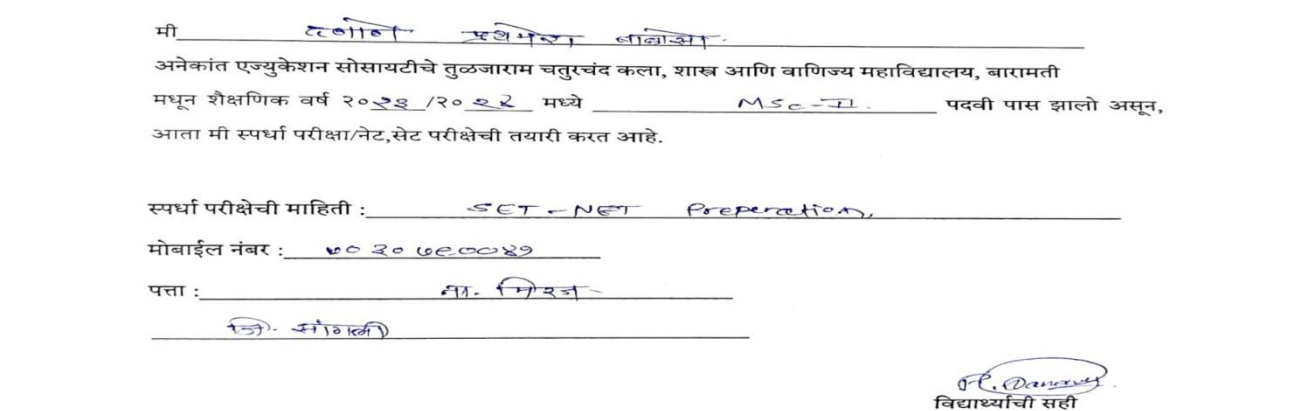 मी दनाने प्रथमेश बाबासो.
अनेकांत एज्युकेशन सोसायटीचे तुळजाराम चतुरचंद कला, शास्त्र आणि वाणिज्य महाविद्यालय, बारामती
मधून शैक्षणिक वर्ष २०२३/२०२४ मध्ये MSc-II. पदवी पास झालो असून,
आता मी स्पर्धा परीक्षा/नेट,सेट परीक्षेची तयारी करत आहे.
स्पर्धा परीक्षेची माहिती : SET-NET Preperation,
मोबाईल नंबर :
पत्ता : ता. मिरज
जि. सांगली
विद्यार्थ्याची सही